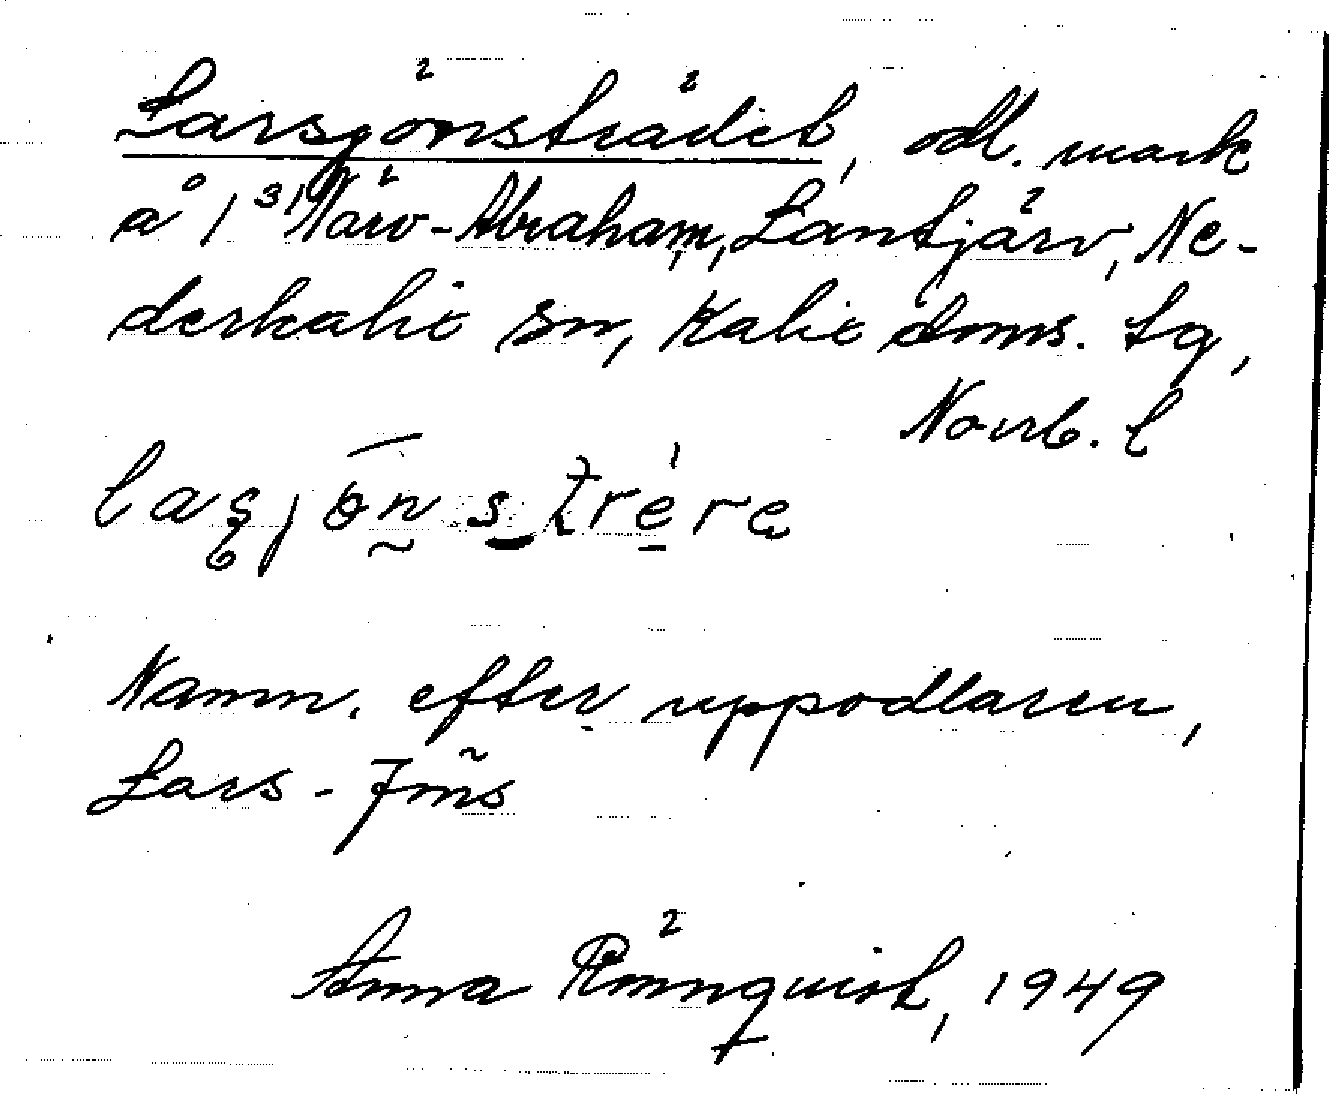 Larsjönsträdet, odl. mark
å 1³¹ Närv-Abraham, Lantjärv, Ne-
derkalix sn, Kalix doms. tg,
Norrb. l
Namn. efter uppodlaren,
Lars-Jöns
Anna Rönnquist, 1949